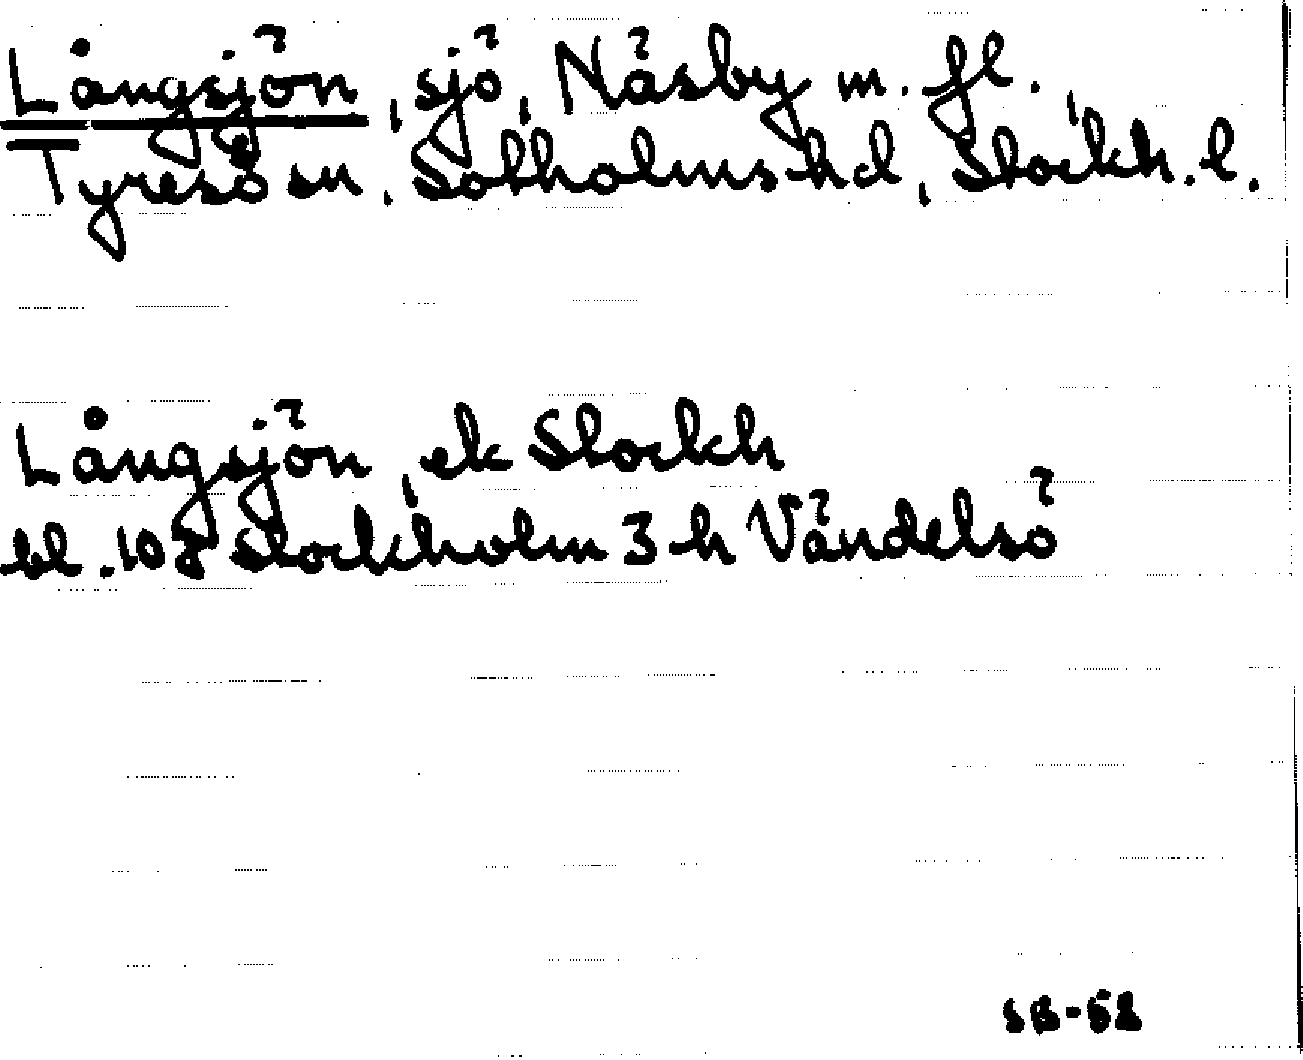 Långsjön, sjö, Näsby m. fl.
Tyresö sn, Sotholms hd, Stockh. l.
Långsjön, ek Stockh
bl. 108 Stockholm 3 h Vändelsö
SB-52